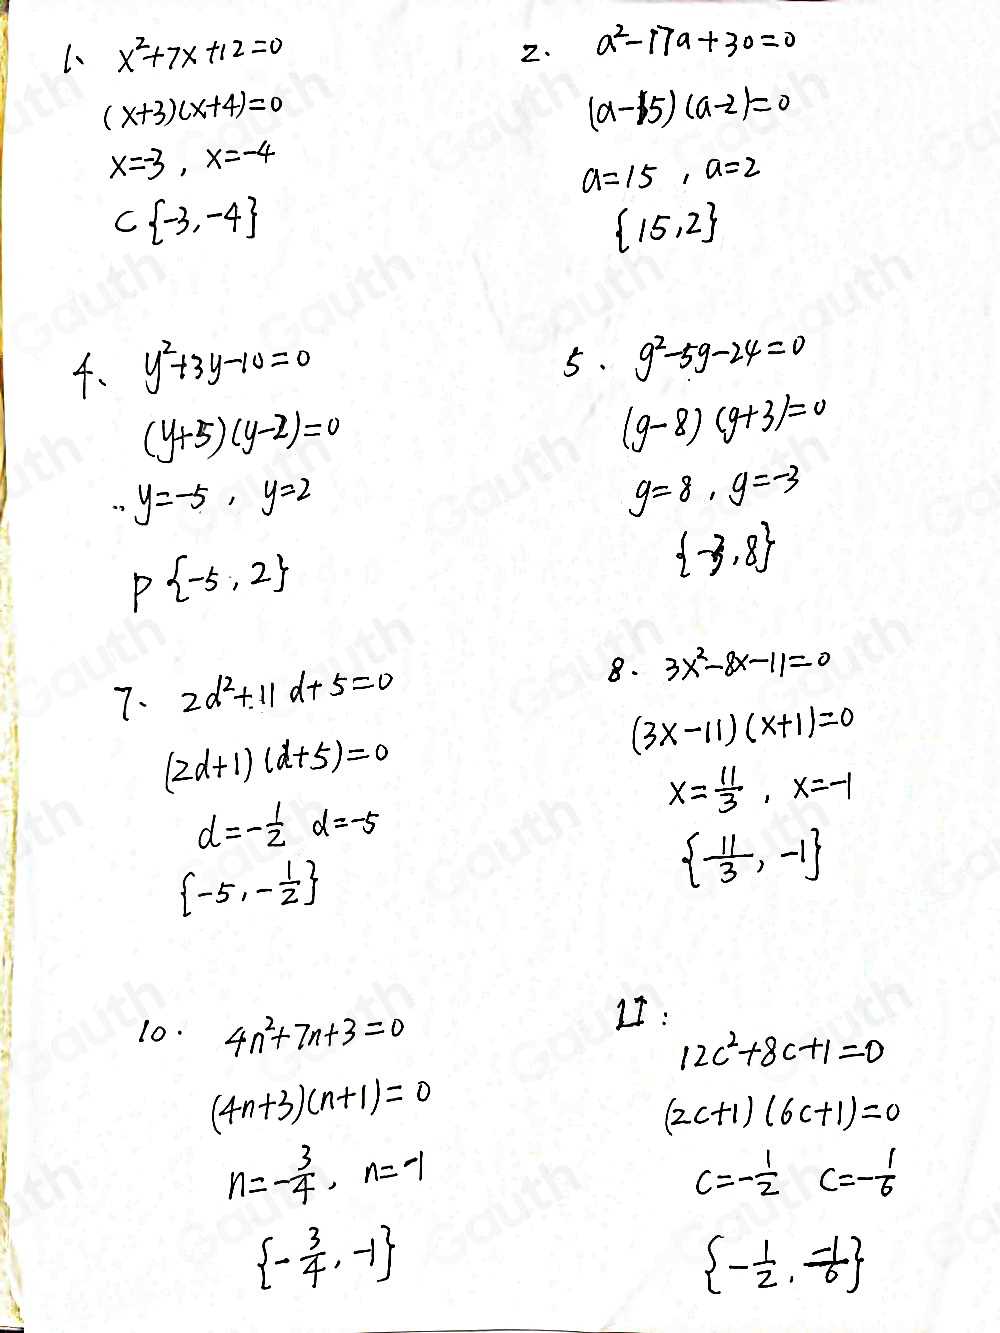 1、 x²+7x+12=0
(x+3)(x+4)=0
x=-3 , x=-4
C {-3,-4}
2. a²-17a+30=0
(a-15)(a-2)=0
a=15 , a=2
{15,2}
4、 y²+3y-10=0
(y+5)(y-2)=0
y=-5 , y=2
p {-5,2}
5. g²-5g-24=0
(g-8)(g+3)=0
g=8 , g=-3
{-3,8}
7、 2d²+11d+5=0
(2d+1)(d+5)=0
d=-1/2 d=-5
{-5,-1/2}
8. 3x²-8x-11=0
(3x-11)(x+1)=0
x=11/3 , x=-1
{11/3, -1}
10. 4n²+7n+3=0
(4n+3)(n+1)=0
n=-3/4 , n=-1
{-3/4, -1}
11:
12c²+8c+1=0
(2c+1)(6c+1)=0
c=-1/2 c=-1/6
{-1/2, -1/6}
Gauth